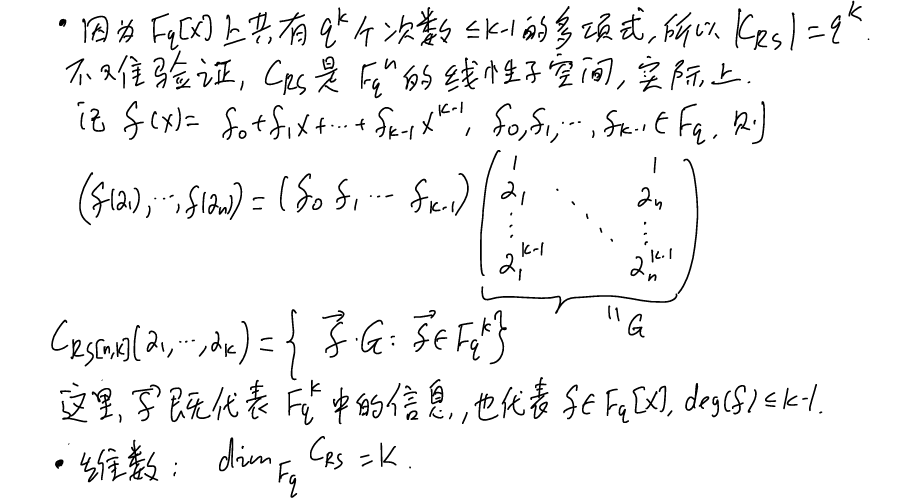 • 因为 F_q[x] 上共有 q^k 个次数 ≤ k-1 的多项式, 所以 |C_RS| = q^k.
不难验证, C_RS 是 F_q^n 的线性子空间, 实际上.
记 f(x) = f_0 + f_1 x + ⋯ + f_{k-1} x^{k-1}, f_0, f_1, ⋯, f_{k-1} ∈ F_q, 则
(f(α_1), ⋯, f(α_n)) = (f_0 f_1 ⋯ f_{k-1}) ( 1 1
α_1 ⋱ α_n
⋮ ⋮
α_1^{k-1} α_n^{k-1} )
" G
C_{RS[n,k]}(α_1, ⋯, α_k) = { \vec{f}·G : \vec{f} ∈ F_q^k }
这里, \vec{f} 既代表 F_q^k 中的信息, 也代表 f ∈ F_q[x], deg(f) ≤ k-1.
• 维数: dim_{F_q} C_RS = k.